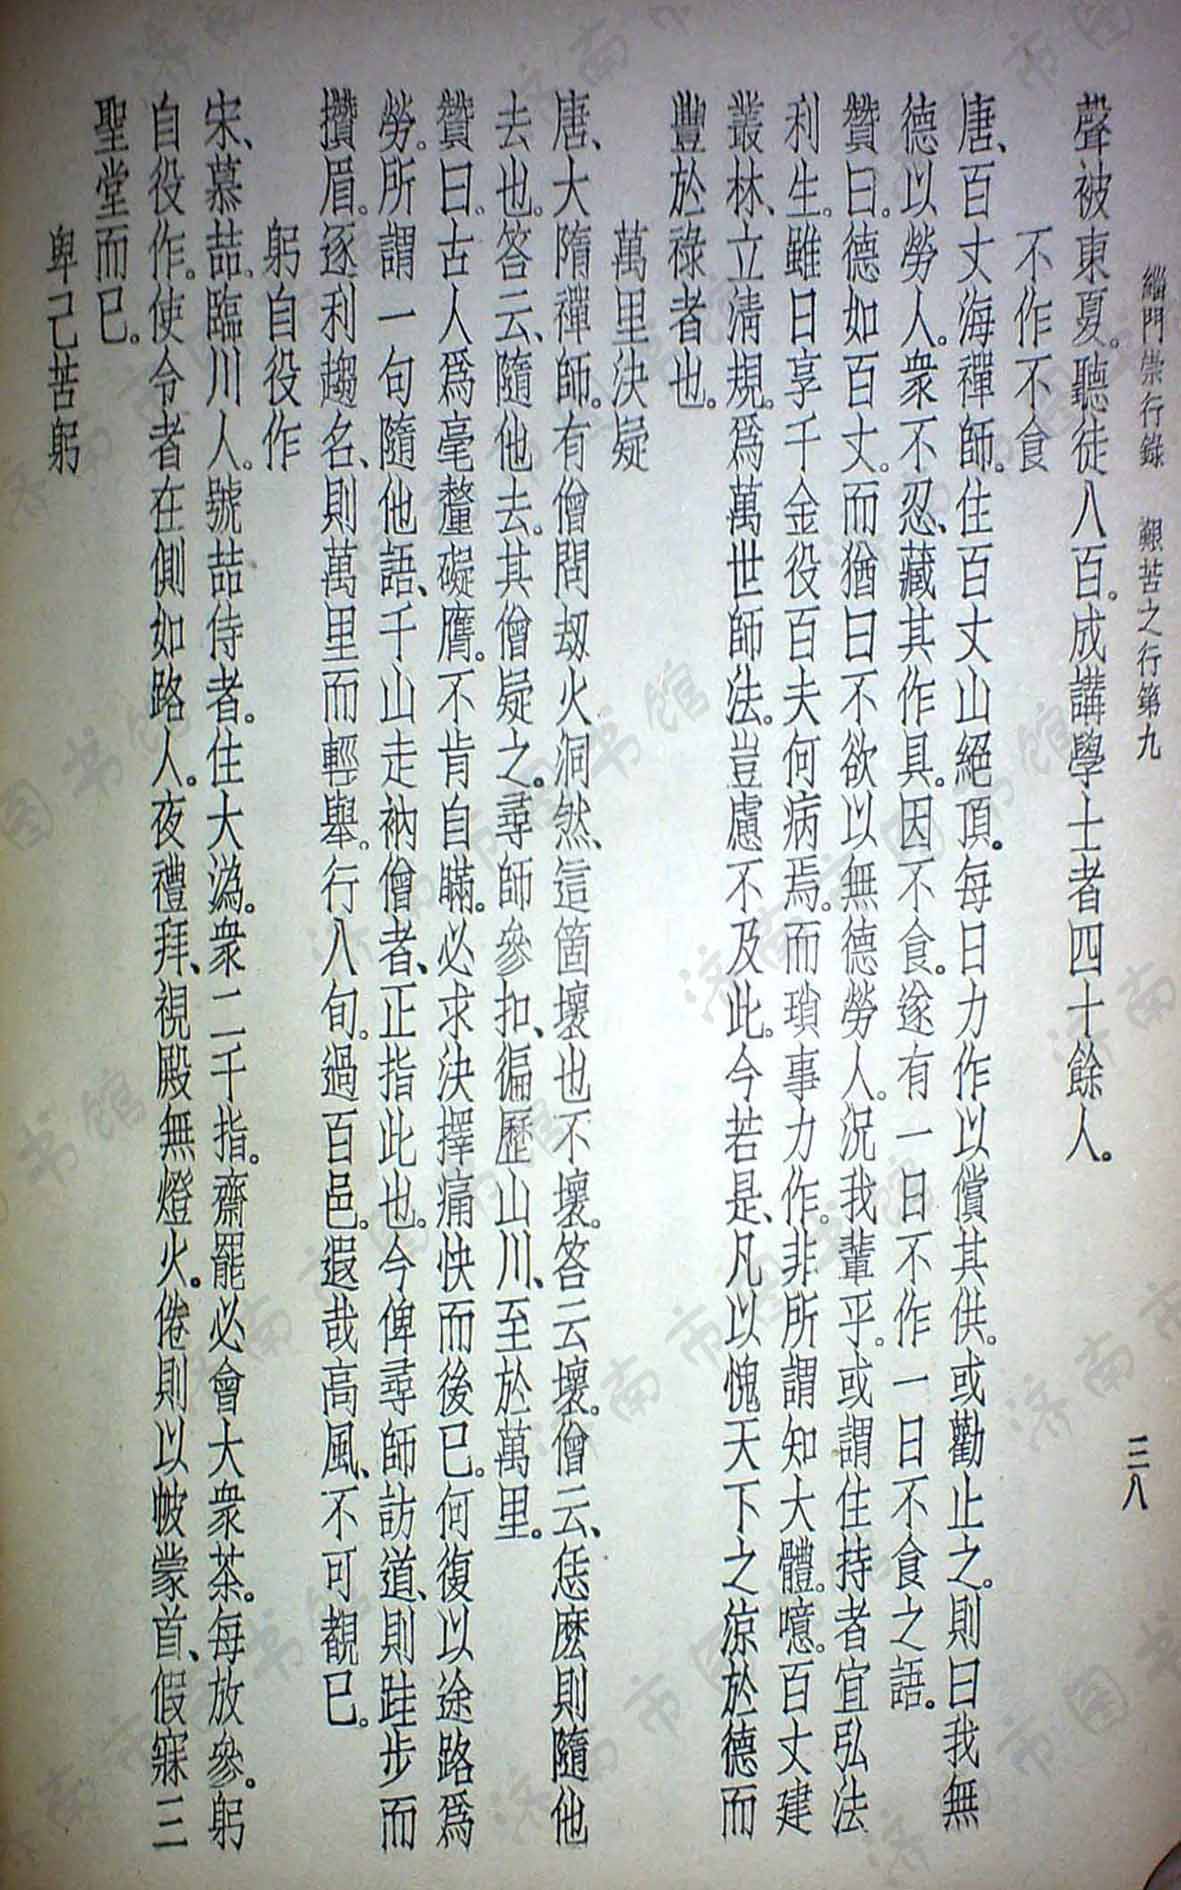 緇門崇行錄　艱苦之行第九　三八
聲被東夏。聽徒八百。成講學士者四十餘人。
不作不食
唐、百丈海禪師。住百丈山絕頂。每日力作以償其供。或勸止之。則曰我無
德以勞人。衆不忍、藏其作具。因不食。遂有一日不作一日不食之語。
贊曰。德如百丈。而猶曰不欲以無德勞人。況我輩乎。或謂住持者宜弘法
利生。雖日享千金役百夫何病焉。而瑣事力作。非所謂知大體。噫。百丈建
叢林、立清規。爲萬世師法。豈慮不及此。今若是、凡以愧天下之涼於德而
豐於祿者也。
萬里決疑
唐、大隋禪師。有僧問劫火洞然、這箇壞也不壞。答云壞。僧云、恁麽則隨他
去也。答云、隨他去。其僧疑之。尋師參扣、徧歷山川、至於萬里。
贊曰。古人爲毫釐礙膺。不肯自瞞。必求決擇痛快而後已。何復以途路爲
勞。所謂一句隨他語、千山走衲僧者、正指此也。今俾尋師訪道、則跬步而
攢眉。逐利趨名、則萬里而輕舉。行八旬。過百邑。遐哉高風、不可觀已。
躬自役作
宋、慕喆。臨川人。號喆侍者。住大溈。衆二千指。齋罷必會大衆茶。每放參。躬
自役作。使令者在側如路人。夜禮拜、視殿無燈火。倦則以帔蒙首、假寐三
聖堂而已。
卑己苦躬
济南市图书馆